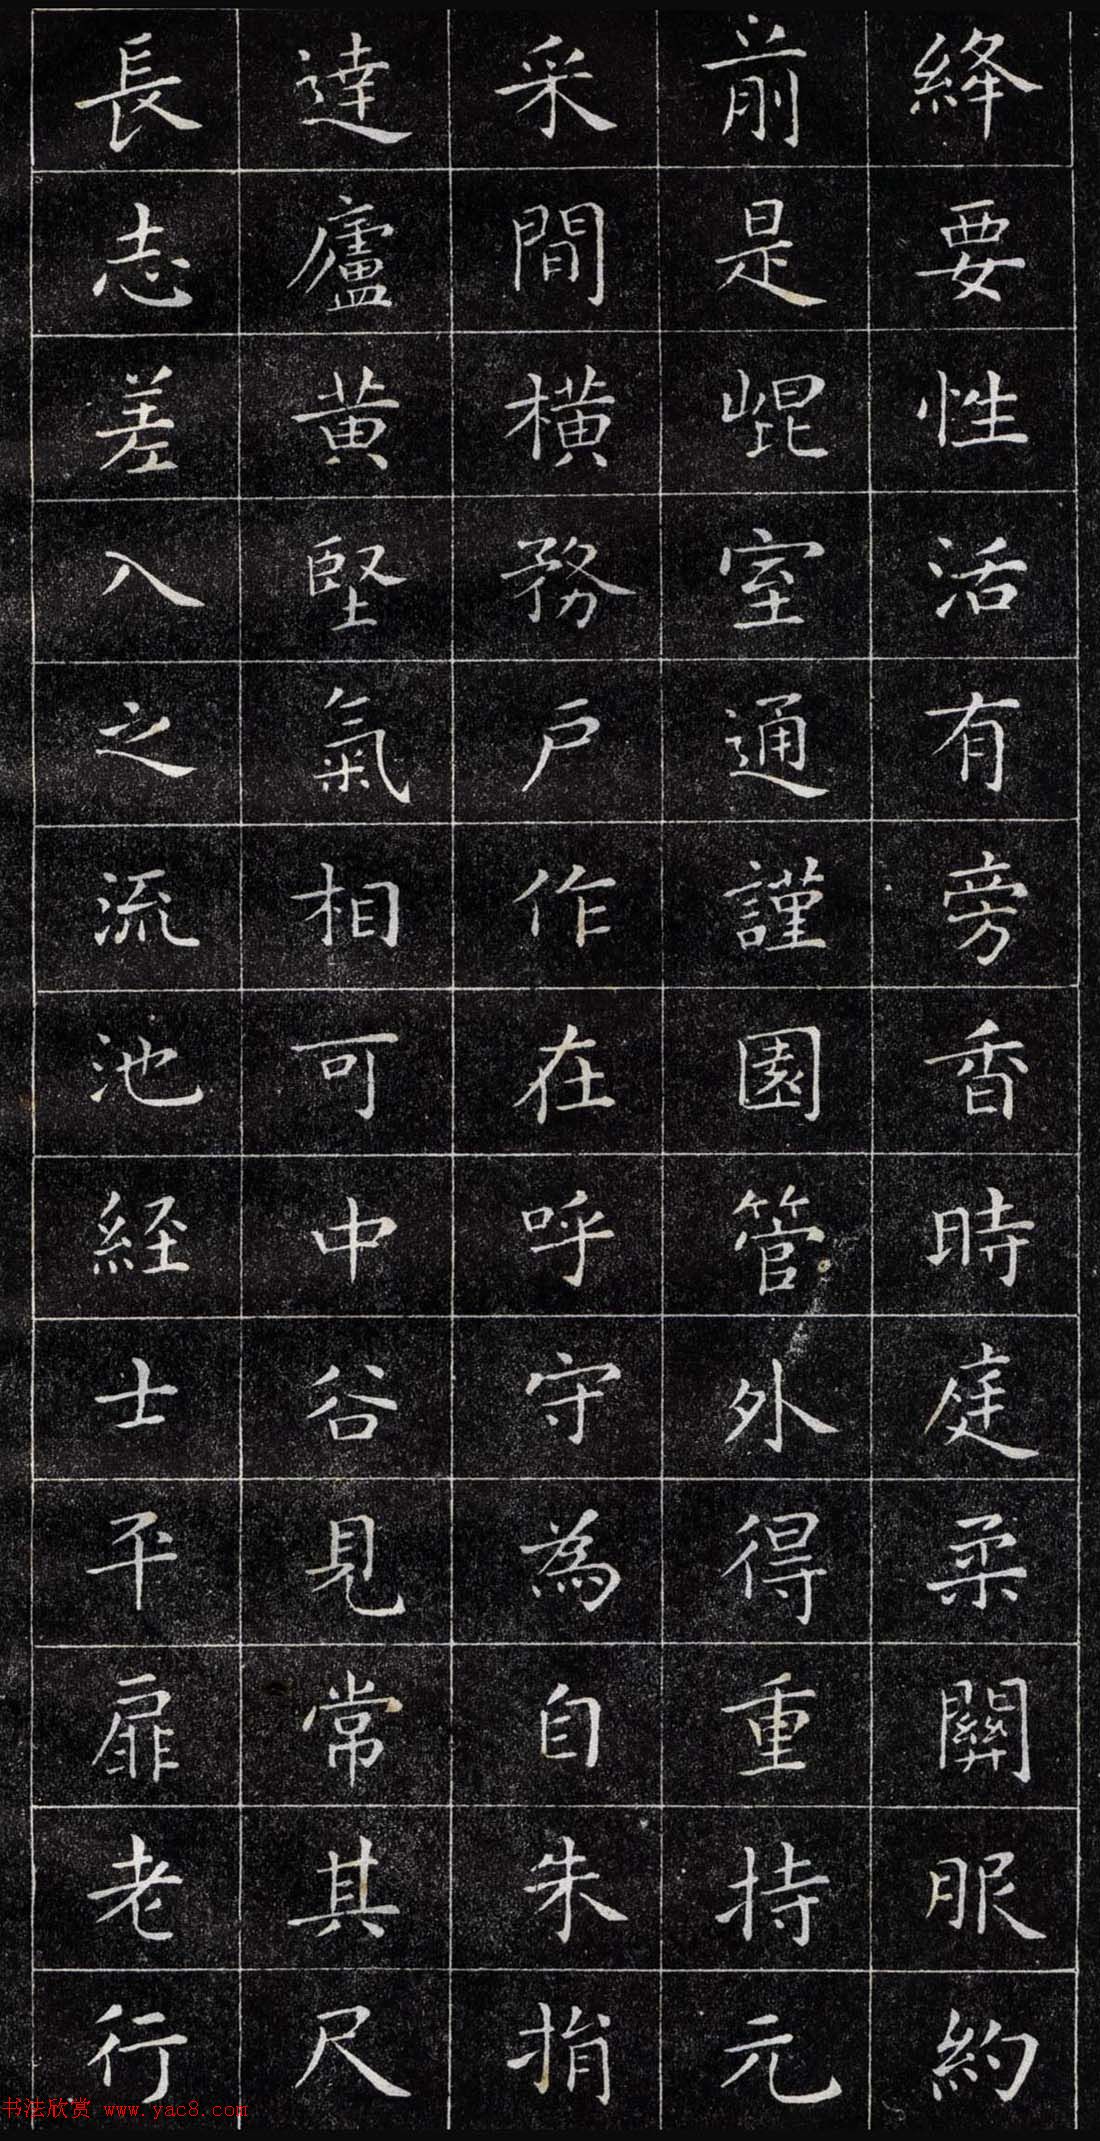 絳要性活有旁香時庭柔關服約
前是崐室通謹園管外得重持元
采間橫務戶作在呼守為自朱揹
達廬黃堅氣相可中谷見常其尺
長志差入之流池経士平扉老行
书法欣赏 www.yac8.com